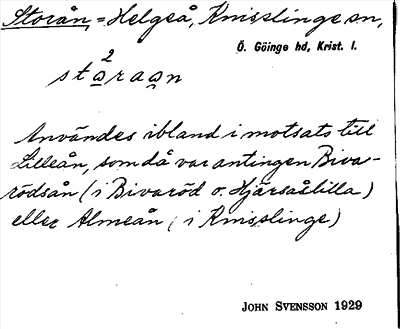 Storån, = Helgeå, Knisslinge sn,
Ö. Göinge hd, Krist. l.
2
st a r a a n
Användes ibland i motsats till
Lilleån, som då var antingen Biva-
rödsån (i Bivaröd o. Hjärsåslilla)
eller Almeån (i Knisslinge)
JOHN SVENSSON 1929